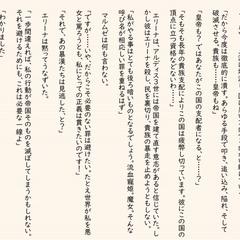 「だから今度は徹底的に潰す。あらゆる手段で叩き、追い込み、陥れ、そして
破滅させる。貴族も……皇帝もね」
「皇帝も？ ではあなたがこの国の支配者になる、と――」
「そもそも長年の貴族支配により、この国は疲弊し切っています。彼にこの国の
頂点に立つ資格などないわ……」
エリーナは、アルディス3世には帝国を建て直す意志があると信じていた。し
かし彼はエリーナを殺し、民を裏切り、貴族の暴走を止めようともしない。
「私がやる事はとても後ろ暗いものとなるでしょう。流血寵姫、魔女、そんな
呼び名が相応しい罪を重ねるはず」
マルムゼは何も言わない。
「ですが……いや、だからこそ必要のない罪は避けたい。たとえ世界が私を悪
女と罵ろうとも、私にとっての正義は貫きたいのです！」
「それで、あの暴漢たちは見逃した、と？」
エリーナは黙ってうなずいた。
「一歩間違えれば、私の行動が帝国そのものを滅ぼしてしまうかもしれない。
それを避けるためにも、これは必要な一線よ」
「わかりました」